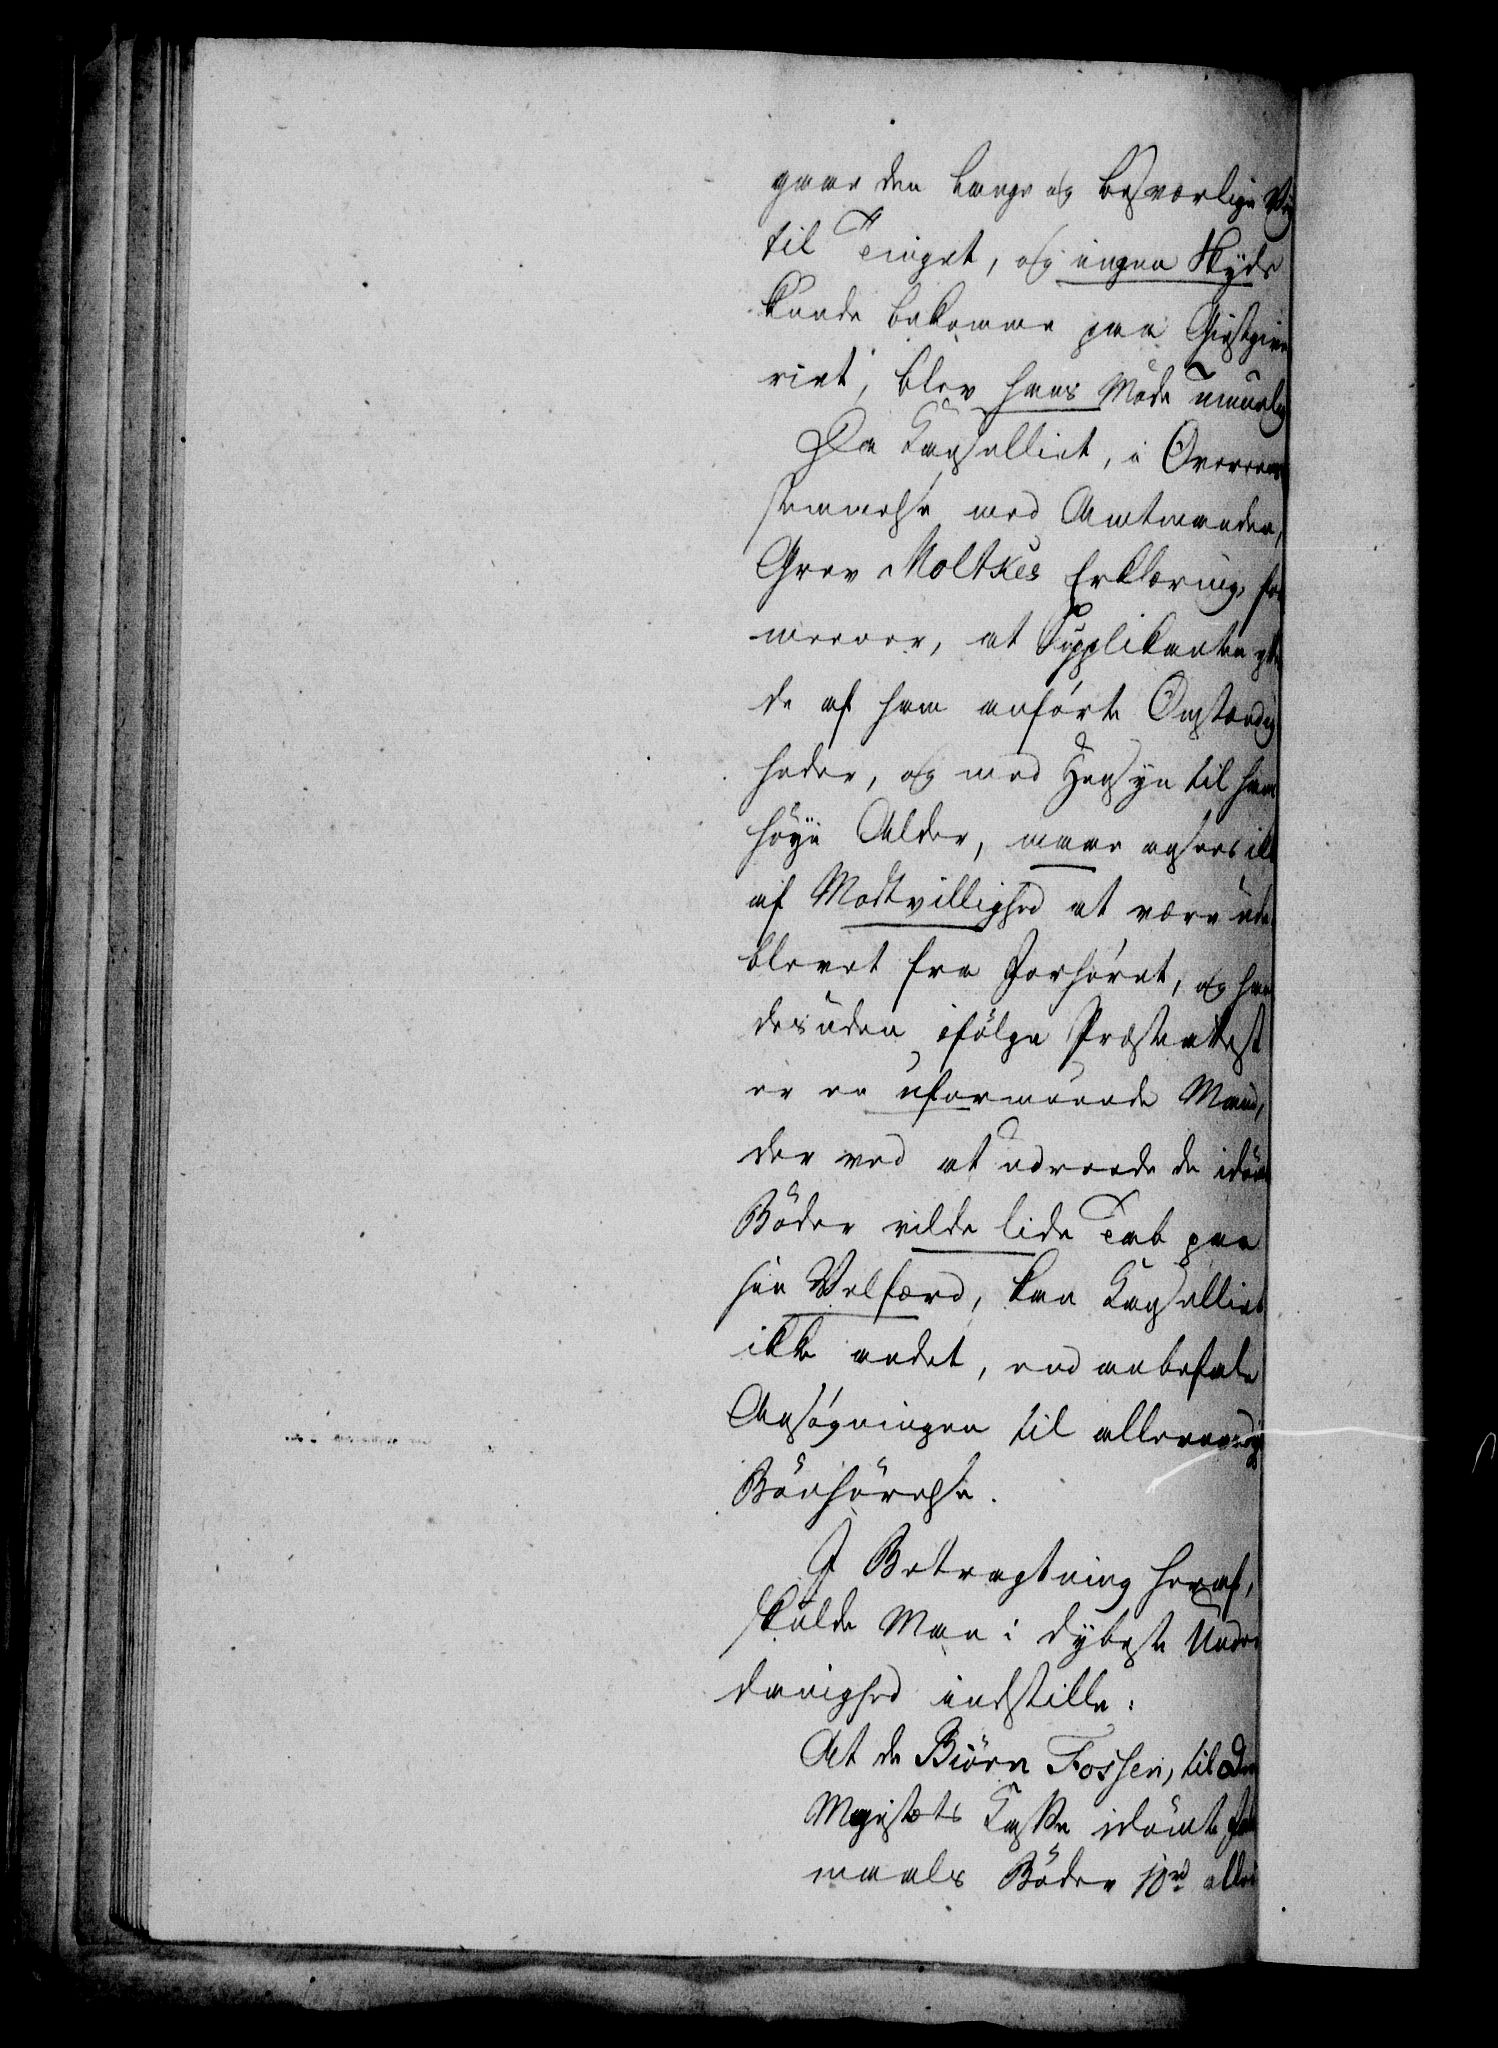 gaae den lange og besværlige Vej
til Tinget, og ingen Skyds
kunde bekomme paa Giestgive
riet, blev hans Møde umuelig
Da Kancelliet, i Overeens
stemmelse med Amtmanden,
Grev Moltkes Erklæring, for
meener, at Supplikanten
de af ham anførte Omstændig
heder, og med Hensyn til hans
høye Alder, maae ansees ikke
af Modtvillighed at være ude
blevet fra Forhøret, og han
desuden ifølge Præsteattest
er en uformuende Mand,
der ved at udreede de idømte
Bøder vilde lide Tab paa
sin Velfærd, kan Kancelliet
ikke andet, end anbefale
Ansøgningen til allernaadigst
Bønhørelse.
I Betragtning heraf,
skulde Man i dybeste Under
danighed indstille:
At de Biørn Fossen, til Deres
Majestæts Kasse idømte Fal
maals Bøder 10 rd aller